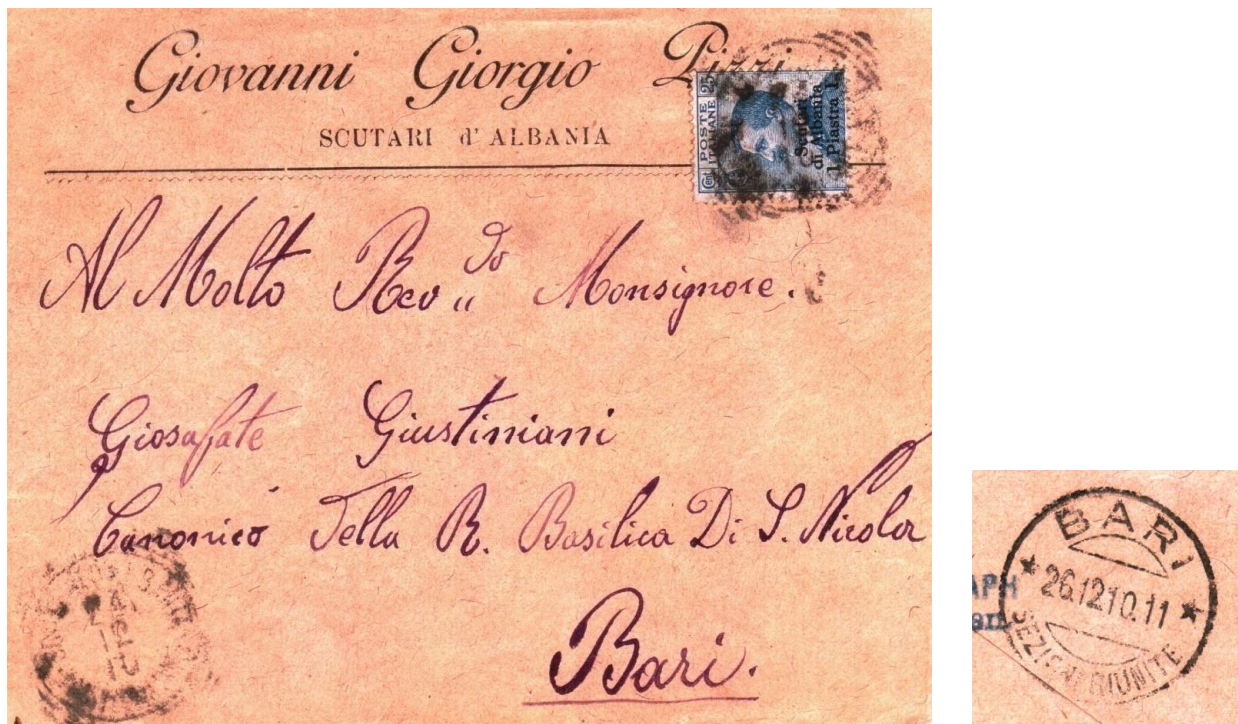 Giovanni Giorgio Pizzi
SCUTARI d'ALBANIA
POSTE ITALIANE
25
Scutari
di Albania
1 Piastra 1
Al Molto Rev.do Monsignore.
Giosafate Giustiniani
Canonico Della R. Basilica Di S. Nicola
Bari.
BARI
26.12.10.11
SEZIONI RIUNITE